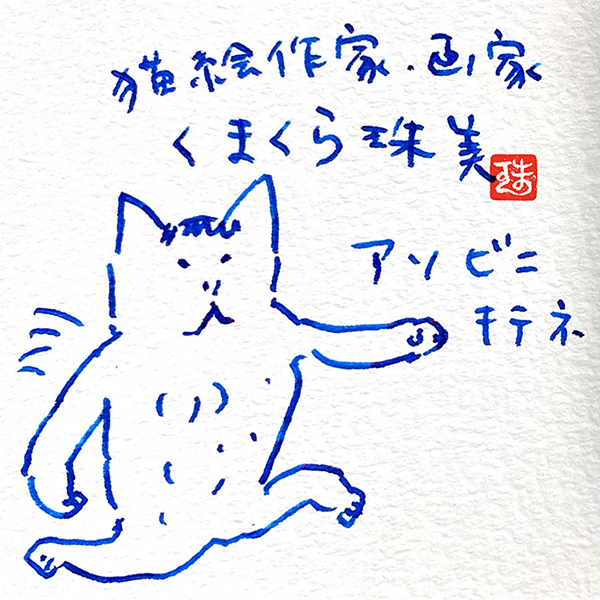 猫絵作家.画家
くまくら珠美
珠
アソビニ
キテネ